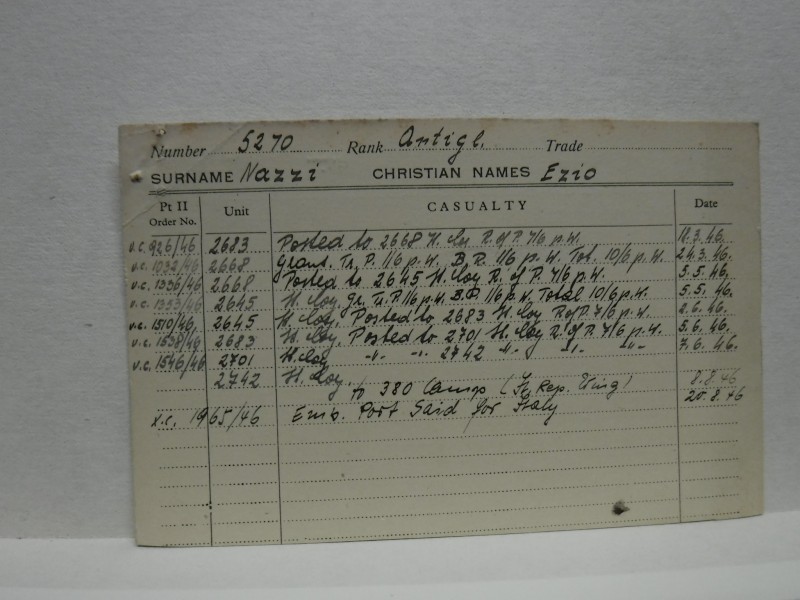 Number 5270 Rank Artigl. Trade
SURNAME Nazzi CHRISTIAN NAMES Ezio
Pt II Order No. Unit CASUALTY Date
v.c. 926/46 2683 Posted to 2668 It. R. of P. 7/6 p.w. 11.3.46.
v.c. 1032/46 2668 Grant. Tr. P. 1/6 p.w. B.P. 1/6 p.w. Tot. 10/6 p.w. 24.3.46.
v.c. 1336/46 2668 Posted to 2645 It. Coy R. of P. 7/6 p.w. 5.5.46.
v.c. 1353/46 2645 It. Coy. Gr. Tr. P. 1/6 p.w. B.P. 1/6 p.w. Total 10/6 p.w. 5.5.46.
v.c. 1510/46 2645 It. Coy. Posted to 2683 It. Coy R of P. 7/6 p.w. 2.6.46.
v.c. 1538/46 2683 It. Coy. Posted to 2701 It. Coy R. of P. 7/6 p.w. 5.6.46.
v.c. 1546/46 2701 It. Coy -"- -"- 2742 -"- -"- -"- 7.6.46.
2742 It. Coy. to 380 Camp (It. Rep. Wing) 8.8.46
v.c. 1965/46 Emb. Port Said for Italy 20.8.46